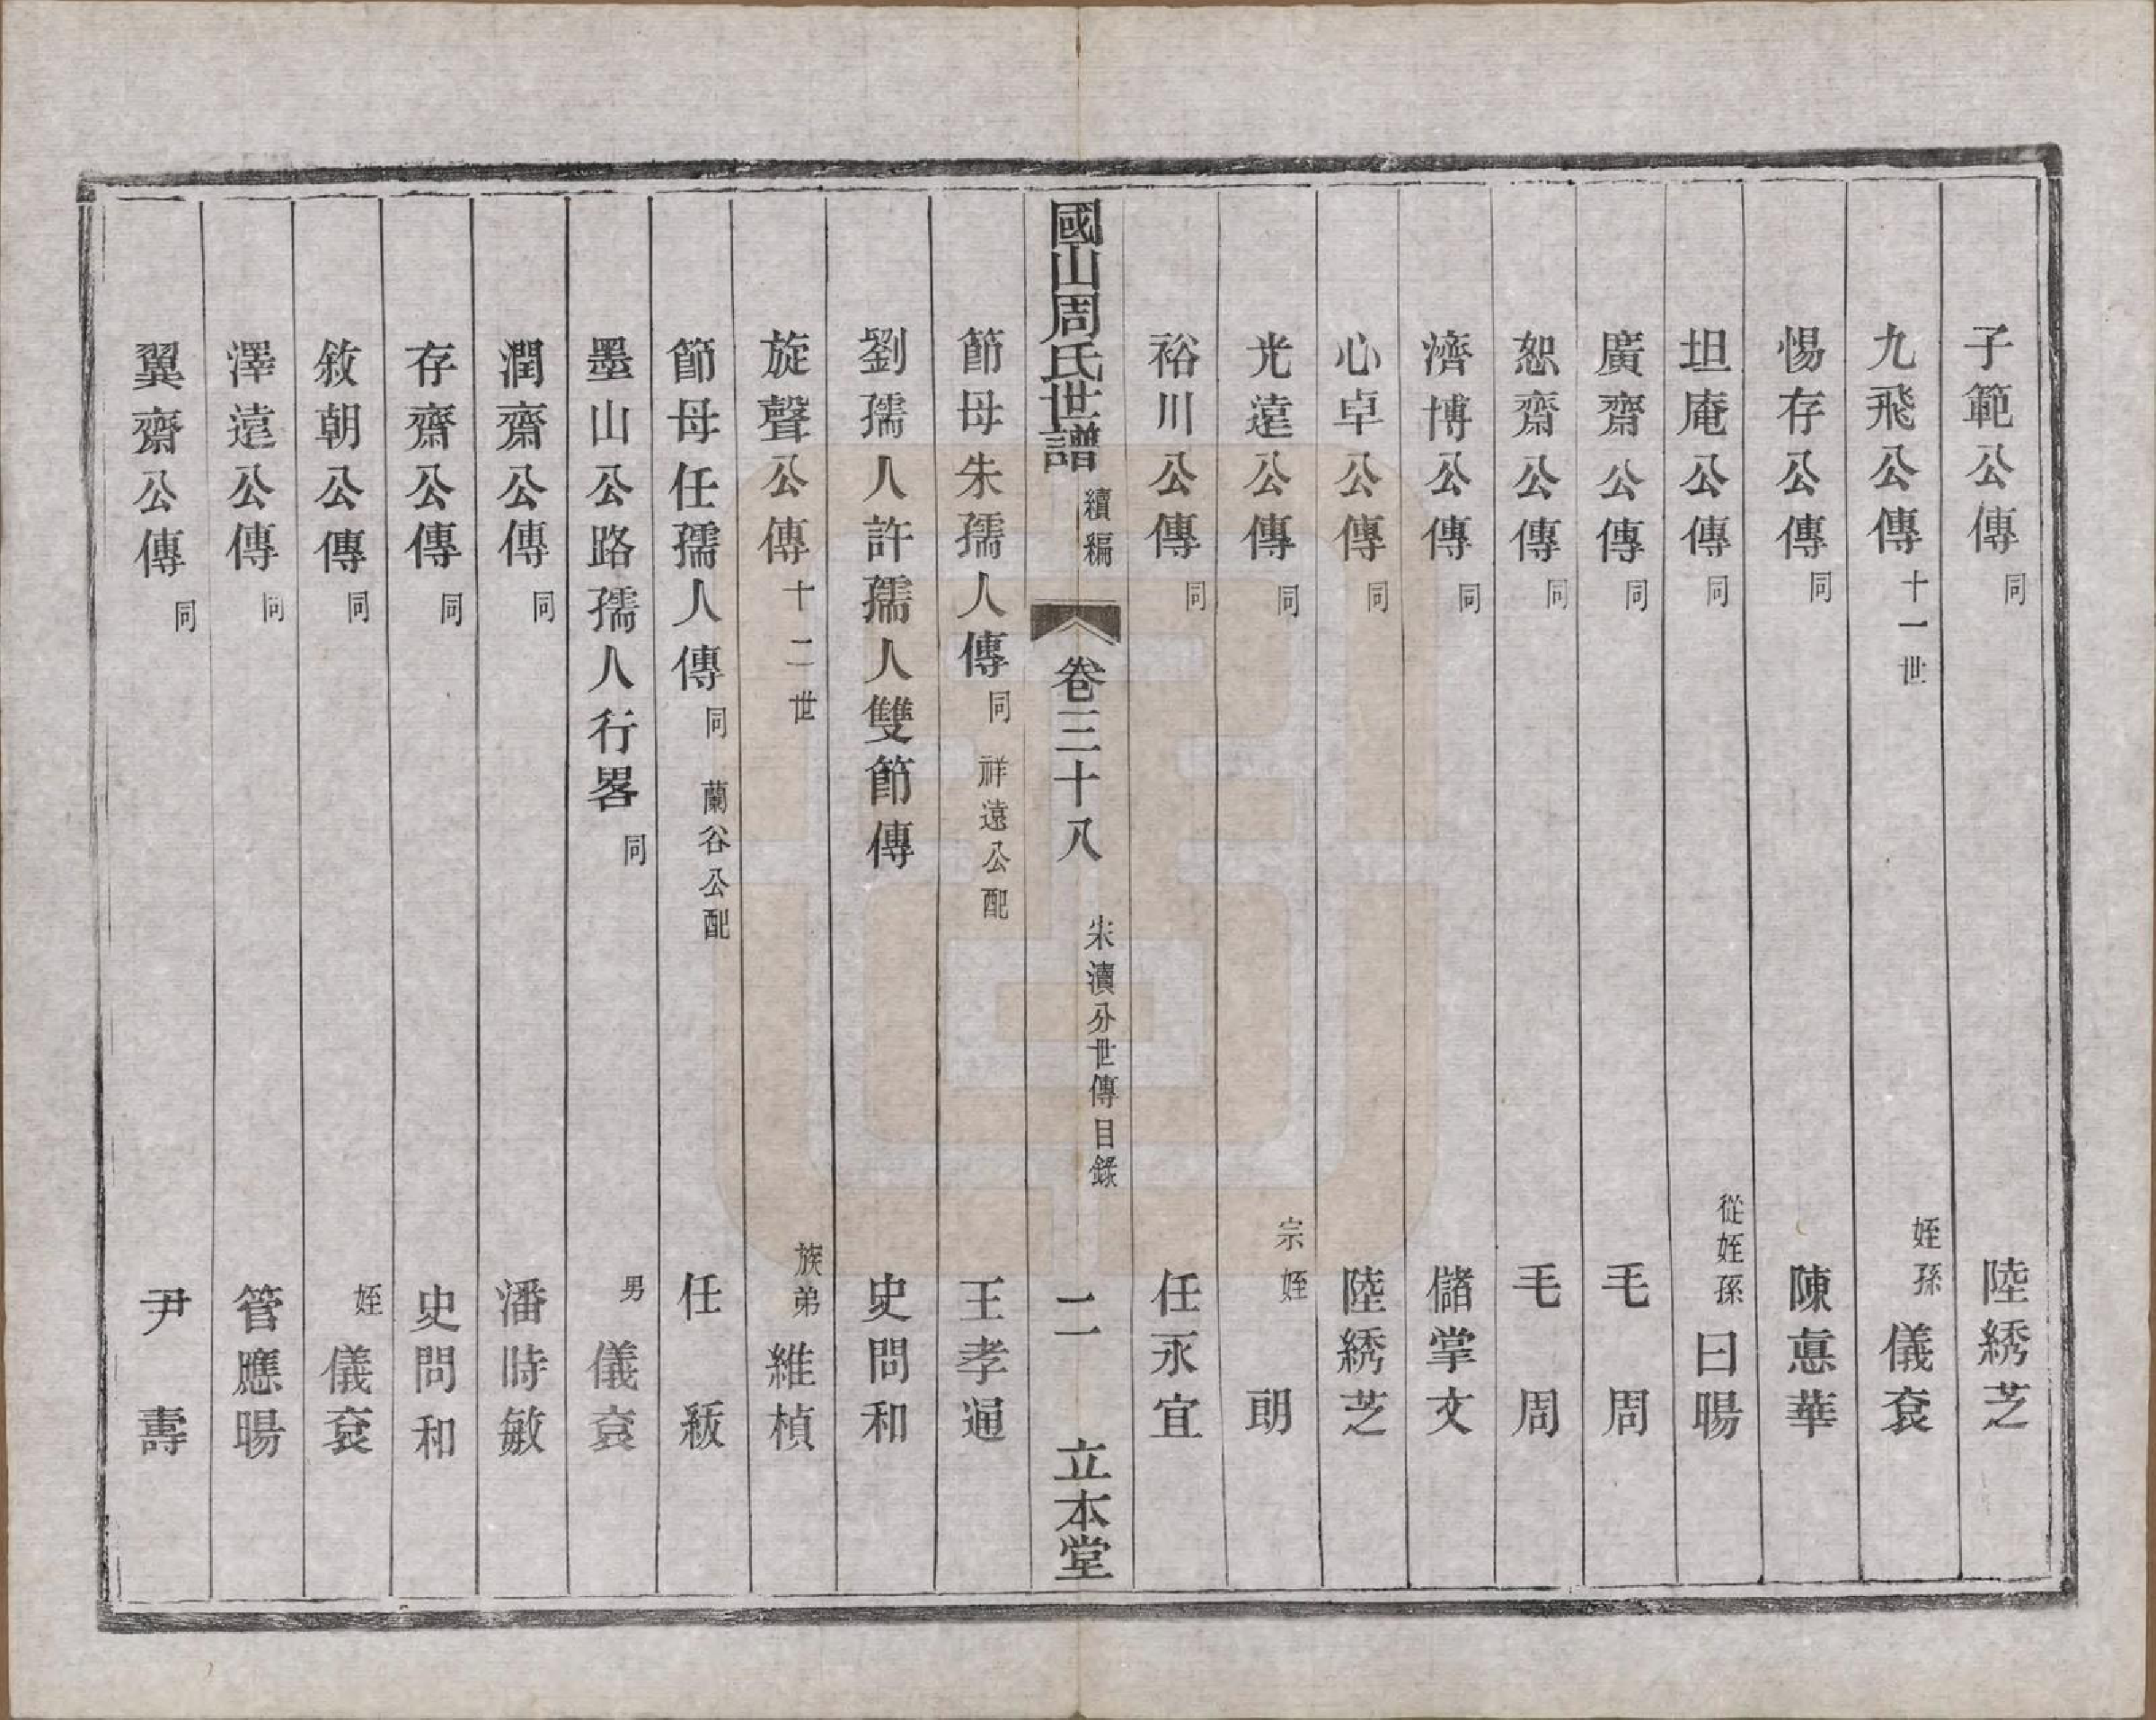 子範公傳 同 陸綉芝
九飛公傳 十一世 姪孫 儀袞
惕存公傳 同 陳惪華
坦庵公傳 同 從姪孫 曰暘
廣齋公傳 同 毛周
恕齋公傳 同 毛周
濟博公傳 同 儲掌文
心卓公傳 同 陸綉芝
光遠公傳 同 宗姪 朗
裕川公傳 同 任永宜
國山周氏世譜 續編 卷三十八 朱瀆分世傳目錄 二 立本堂
節母朱孺人傳 同 祥遠公配 王孝通
劉孺人許孺人雙節傳 史問和
旋聲公傳 十二世 族弟 維楨
節母任孺人傳 同 蘭谷公配 任紱
墨山公路孺人行畧 同 男 儀袞
潤齋公傳 同 潘時敏
存齋公傳 同 史問和
敘朝公傳 同 姪 儀袞
澤遠公傳 同 管應暘
翼齋公傳 同 尹壽